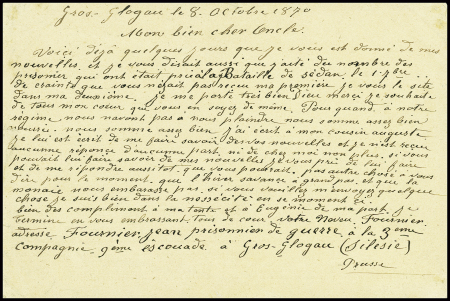 Gros-Glogau le 8. Octobre 1870
Mon bien cher Oncle.
Voici déjà quelques jours que je vous est donné de mes
nouvelles, et je vous disait aussi que j'était du nombre des
prisonier qui ont était pris à la Bataille de sédan. le 1.7bre
de crainte que vous n'ait pas reçu ma première je vous la réitè
dans ma deuxième, je me porte très bien Dieu merci je souhaite
de tous mon coeur que vous en soyez de même. Pour quand à notre
régime nous navont pas à nous plaindre nous somme assez bien
nourrie. nous somme assez bien j'ai écrit à mon cousin auguste
je lui est écrit de me faire savoir des vos nouvelles et je n'est reçu
aucunne réponce d'aucunne part, ni de chez moi non plus, si vous
pouvait lui faire savoir de mes nouvelles je vous prie de lui faire
et de me répondre aussitôt que vous pourrait, pas autre chose à vous
dire pour le moment, que l'hiver s'avance à grand pas, et que la
monaie nous embarasse pas, si vous vouillez m'envoyez quelque
chose je suis bien dans la nossécité en se moment ci
bien des compliment à ma tante et à Eugénie de ma part je
termine en vous embrassant tous de coeur votre Neveu Fournier
adresse Fournier, jean prisonnien de guerre à la 3ème
compagnie 9ème escouade à Gros-Glogau (Silésie)
Prusse